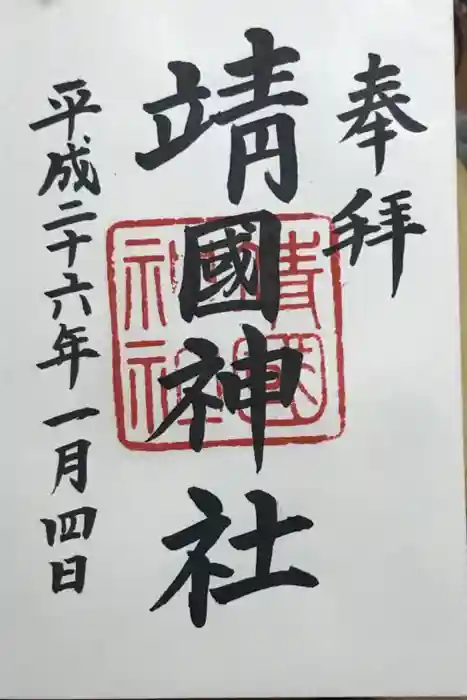 奉拝
靖國神社
平成二十六年一月四日
靖國
神社